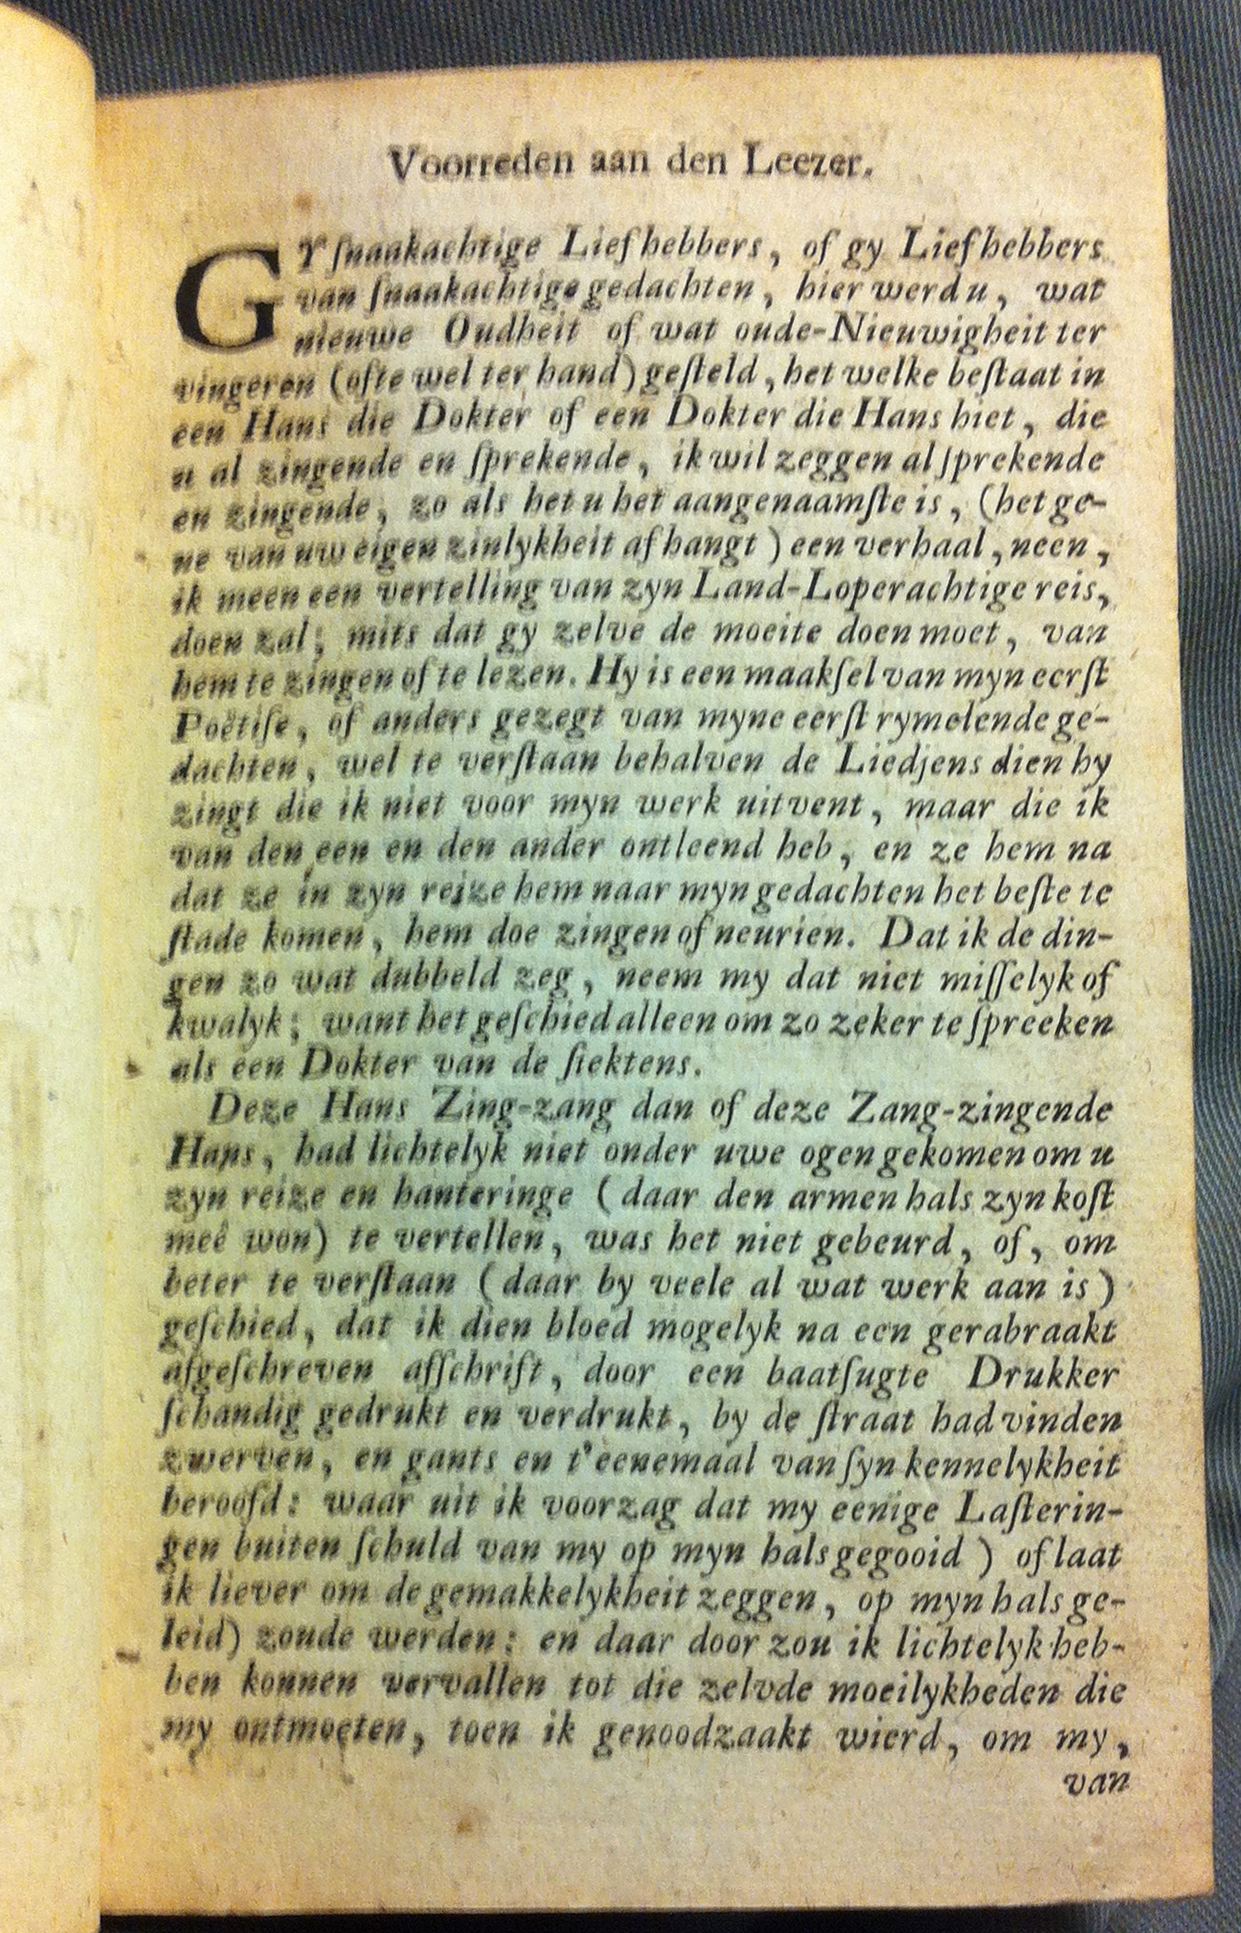 Voorreden aan den Leezer.
GY ſnaakachtige Liefhebbers, of gy Liefhebbers
van ſnaakachtige gedachten, hier werd u, wat
nieuwe Oudheit of wat oude-Nieuwigheit ter
vingeren (ofte wel ter hand) geſteld, het welke beſtaat in
een Hans die Dokter of een Dokter die Hans hiet, die
u al zingende en ſprekende, ik wil zeggen al ſprekende
en zingende, zo als het u het aangenaamſte is, (het ge-
ne van uw eigen zinlykheit afhangt) een verhaal, neen,
ik meen een vertelling van zyn Land-Loperachtige reis,
doen zal; mits dat gy zelve de moeite doen moet, van
hem te zingen of te lezen. Hy is een maakſel van myn eerſt
Poëtiſe, of anders gezegt van myne eerſt rymelende ge-
dachten, wel te verſtaan behalven de Liedjens dien hy
zingt die ik niet voor myn werk uitvent, maar die ik
van den een en den ander ontleend heb, en ze hem na
dat ze in zyn reize hem naar myn gedachten het beſte te
ſtade komen, hem doe zingen of neurien. Dat ik de din-
gen zo wat dubbeld zeg, neem my dat niet miſſelyk of
kwalyk; want het geſchied alleen om zo zeker te ſpreeken
als een Dokter van de ſiektens.
Deze Hans Zing-zang dan of deze Zang-zingende
Hans, had lichtelyk niet onder uwe ogen gekomen om u
zyn reize en hanteringe (daar den armen hals zyn koſt
meê won) te vertellen, was het niet gebeurd, of, om
beter te verſtaan (daar by veele al wat werk aan is)
geſchied, dat ik dien bloed mogelyk na een gerabraakt
afgeſchreven afſchrift, door een baatſugte Drukker
ſchandig gedrukt en verdrukt, by de ſtraat had vinden
zwerven, en gants en t'eenemaal van ſyn kennelykheit
beroofd: waar uit ik voorzag dat my eenige Laſterin-
gen buiten ſchuld van my op myn hals gegooid) of laat
ik liever om de gemakkelykheit zeggen, op myn hals ge-
leid) zoude werden: en daar door zou ik lichtelyk heb-
ben konnen vervallen tot die zelvde moeilykheden die
my ontmoeten, toen ik genoodzaakt wierd, om my,
van